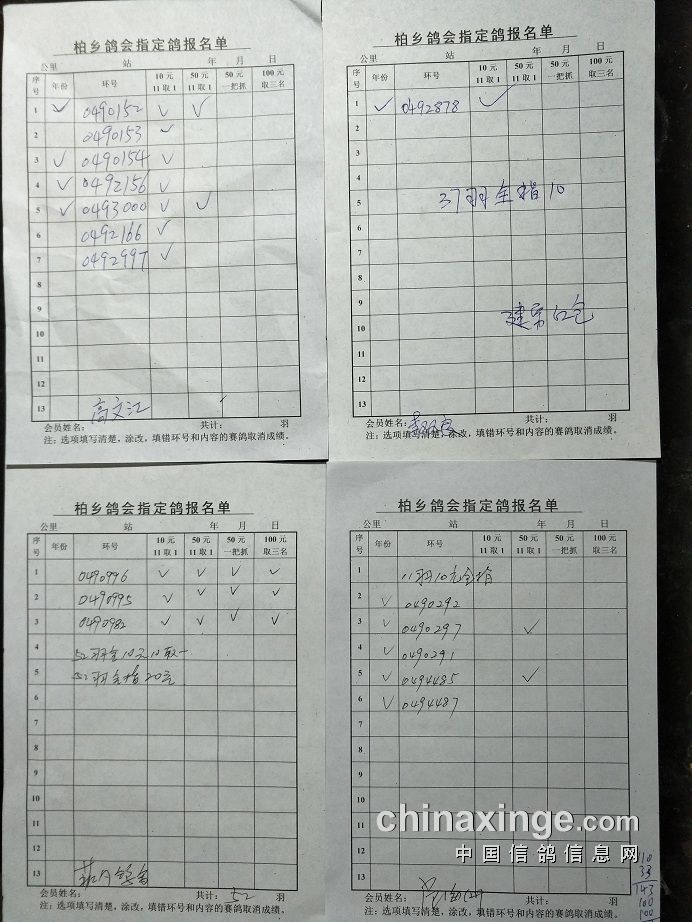 柏乡鸽会指定鸽报名单
公里 站 年 月 日
序号 年份 环号 10元 11取1 50元 11取1 50元 一把抓 100元 取三名
1 ✓ 0490152 ✓ ✓
2 0490153 ✓
3 ✓ 0490154 ✓
4 ✓ 0492156 ✓
5 ✓ 0493000 ✓ ✓
6 0492166 ✓
7 0492997 ✓
8
9
10
11
12
13 高文江
会员姓名: 共计: 羽
注:选项填写清楚,涂改,填错环号和内容的赛鸽取消成绩。
柏乡鸽会指定鸽报名单
公里 站 年 月 日
序号 年份 环号 10元 11取1 50元 11取1 50元 一把抓 100元 取三名
1 ✓ 0492878 ✓
2
3
4
5 37羽全指10
6
7
8
9
10 建 红包
11
12
13
会员姓名: 共计: 羽
注:选项填写清楚,涂改,填错环号和内容的赛鸽取消成绩。
柏乡鸽会指定鸽报名单
公里 站 年 月 日
序号 年份 环号 10元 11取1 50元 11取1 50元 一把抓 100元 取三名
1 0490996 ✓ ✓ ✓ ✓
2 0490995 ✓ ✓ ✓ ✓
3 0490982 ✓ ✓ ✓ ✓
4 52羽全10元11取一
5 52羽全指20元
6
7
8
9
10
11
12
13 鸽舍
会员姓名: 共计: 52 羽
注:选项填写清楚,涂改,填错环号和内容的赛鸽取消成绩。
柏乡鸽会指定鸽报名单
公里 站 年 月 日
序号 年份 环号 10元 11取1 50元 11取1 50元 一把抓 100元 取三名
1 11羽10元全指
2 ✓ 0490292
3 ✓ 0490297 ✓
4 ✓ 0490291
5 ✓ 0494485 ✓
6 ✓ 0494487
7
8
9
10
11
12
13
会员姓名: 共计: 羽
注:选项填写清楚,涂改,填错环号和内容的赛鸽取消成绩。
110
33
143
100
100
chinaxinge.com
中国信鸽信息网